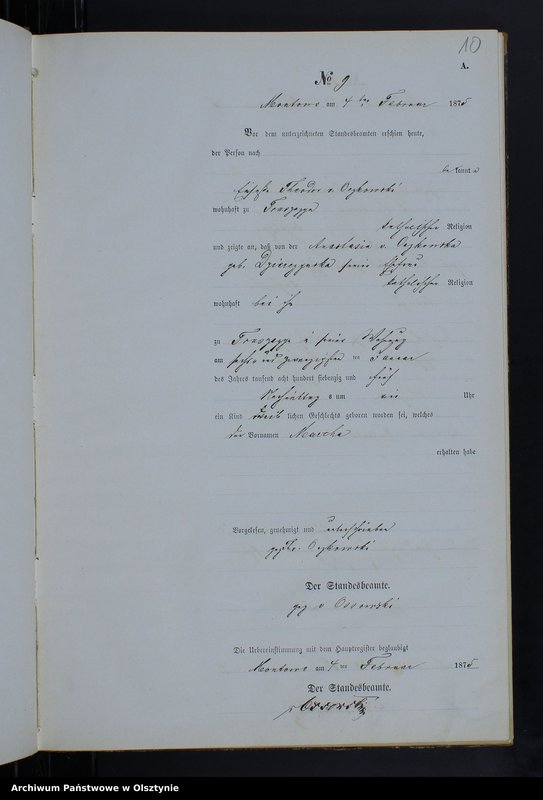 10
A.
No 9
Montowo am 4ten Februar 1875
Vor dem unterzeichneten Standesbeamten erschien heute,
der Person nach
bekannt
Theodor v.
wohnhaft zu
katholischer Religion
und zeigte an, daß von der Anastasia v.
geb. seiner Ehefrau
katholischer Religion
wohnhaft bei ihm
zu in seiner Wohnung
am sechs und zwanzigsten Januar
des Jahres tausend acht hundert siebenzig und fünf
Nachmittags um Uhr
ein Kind weiblichen Geschlechts geboren worden sei, welches
den Vornamen Martha
erhalten habe
Vorgelesen, genehmigt und unterschrieben
gez.
Der Standesbeamte.
gez v Ossowski
Die Uebereinstimmung mit dem Hauptregister beglaubigt
Montowo am 4ten Februar 1875
Der Standesbeamte.
v Ossowski
Archiwum Państwowe w Olsztynie